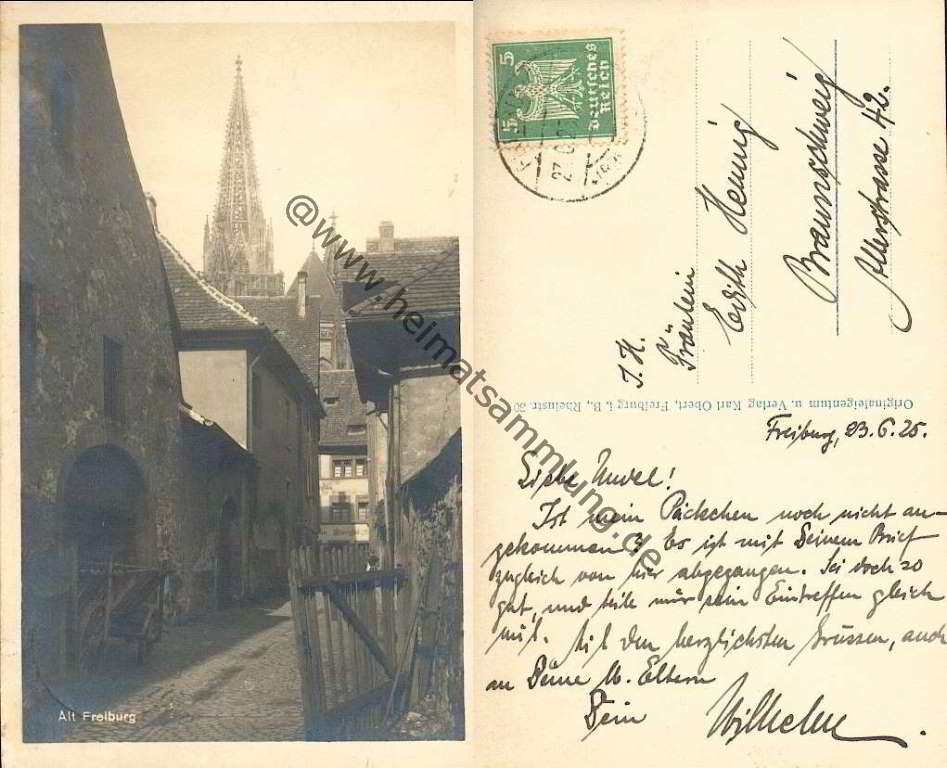 Alt Freiburg
@www.heimatsammlung.de
5
5
Deutsches
Reich
I. H.
Fräulein
Edith Hennig
Braunschweig
Allerstrasse 42.
Originaleigentum u. Verlag Karl Obert, Freiburg i. B., Rheinstr. 50
Freiburg, 23.6.25.
Liebe
Ist mein Päckchen noch nicht an-
gekommen? Es ist mit Deinem Brief
zugleich von hier abgegangen. Sei doch so
gut, und teile mir sein Eintreffen gleich
mit. Mit den herzlichsten Grüssen, auch
an Deine lb. Eltern
Dein Wilhelm